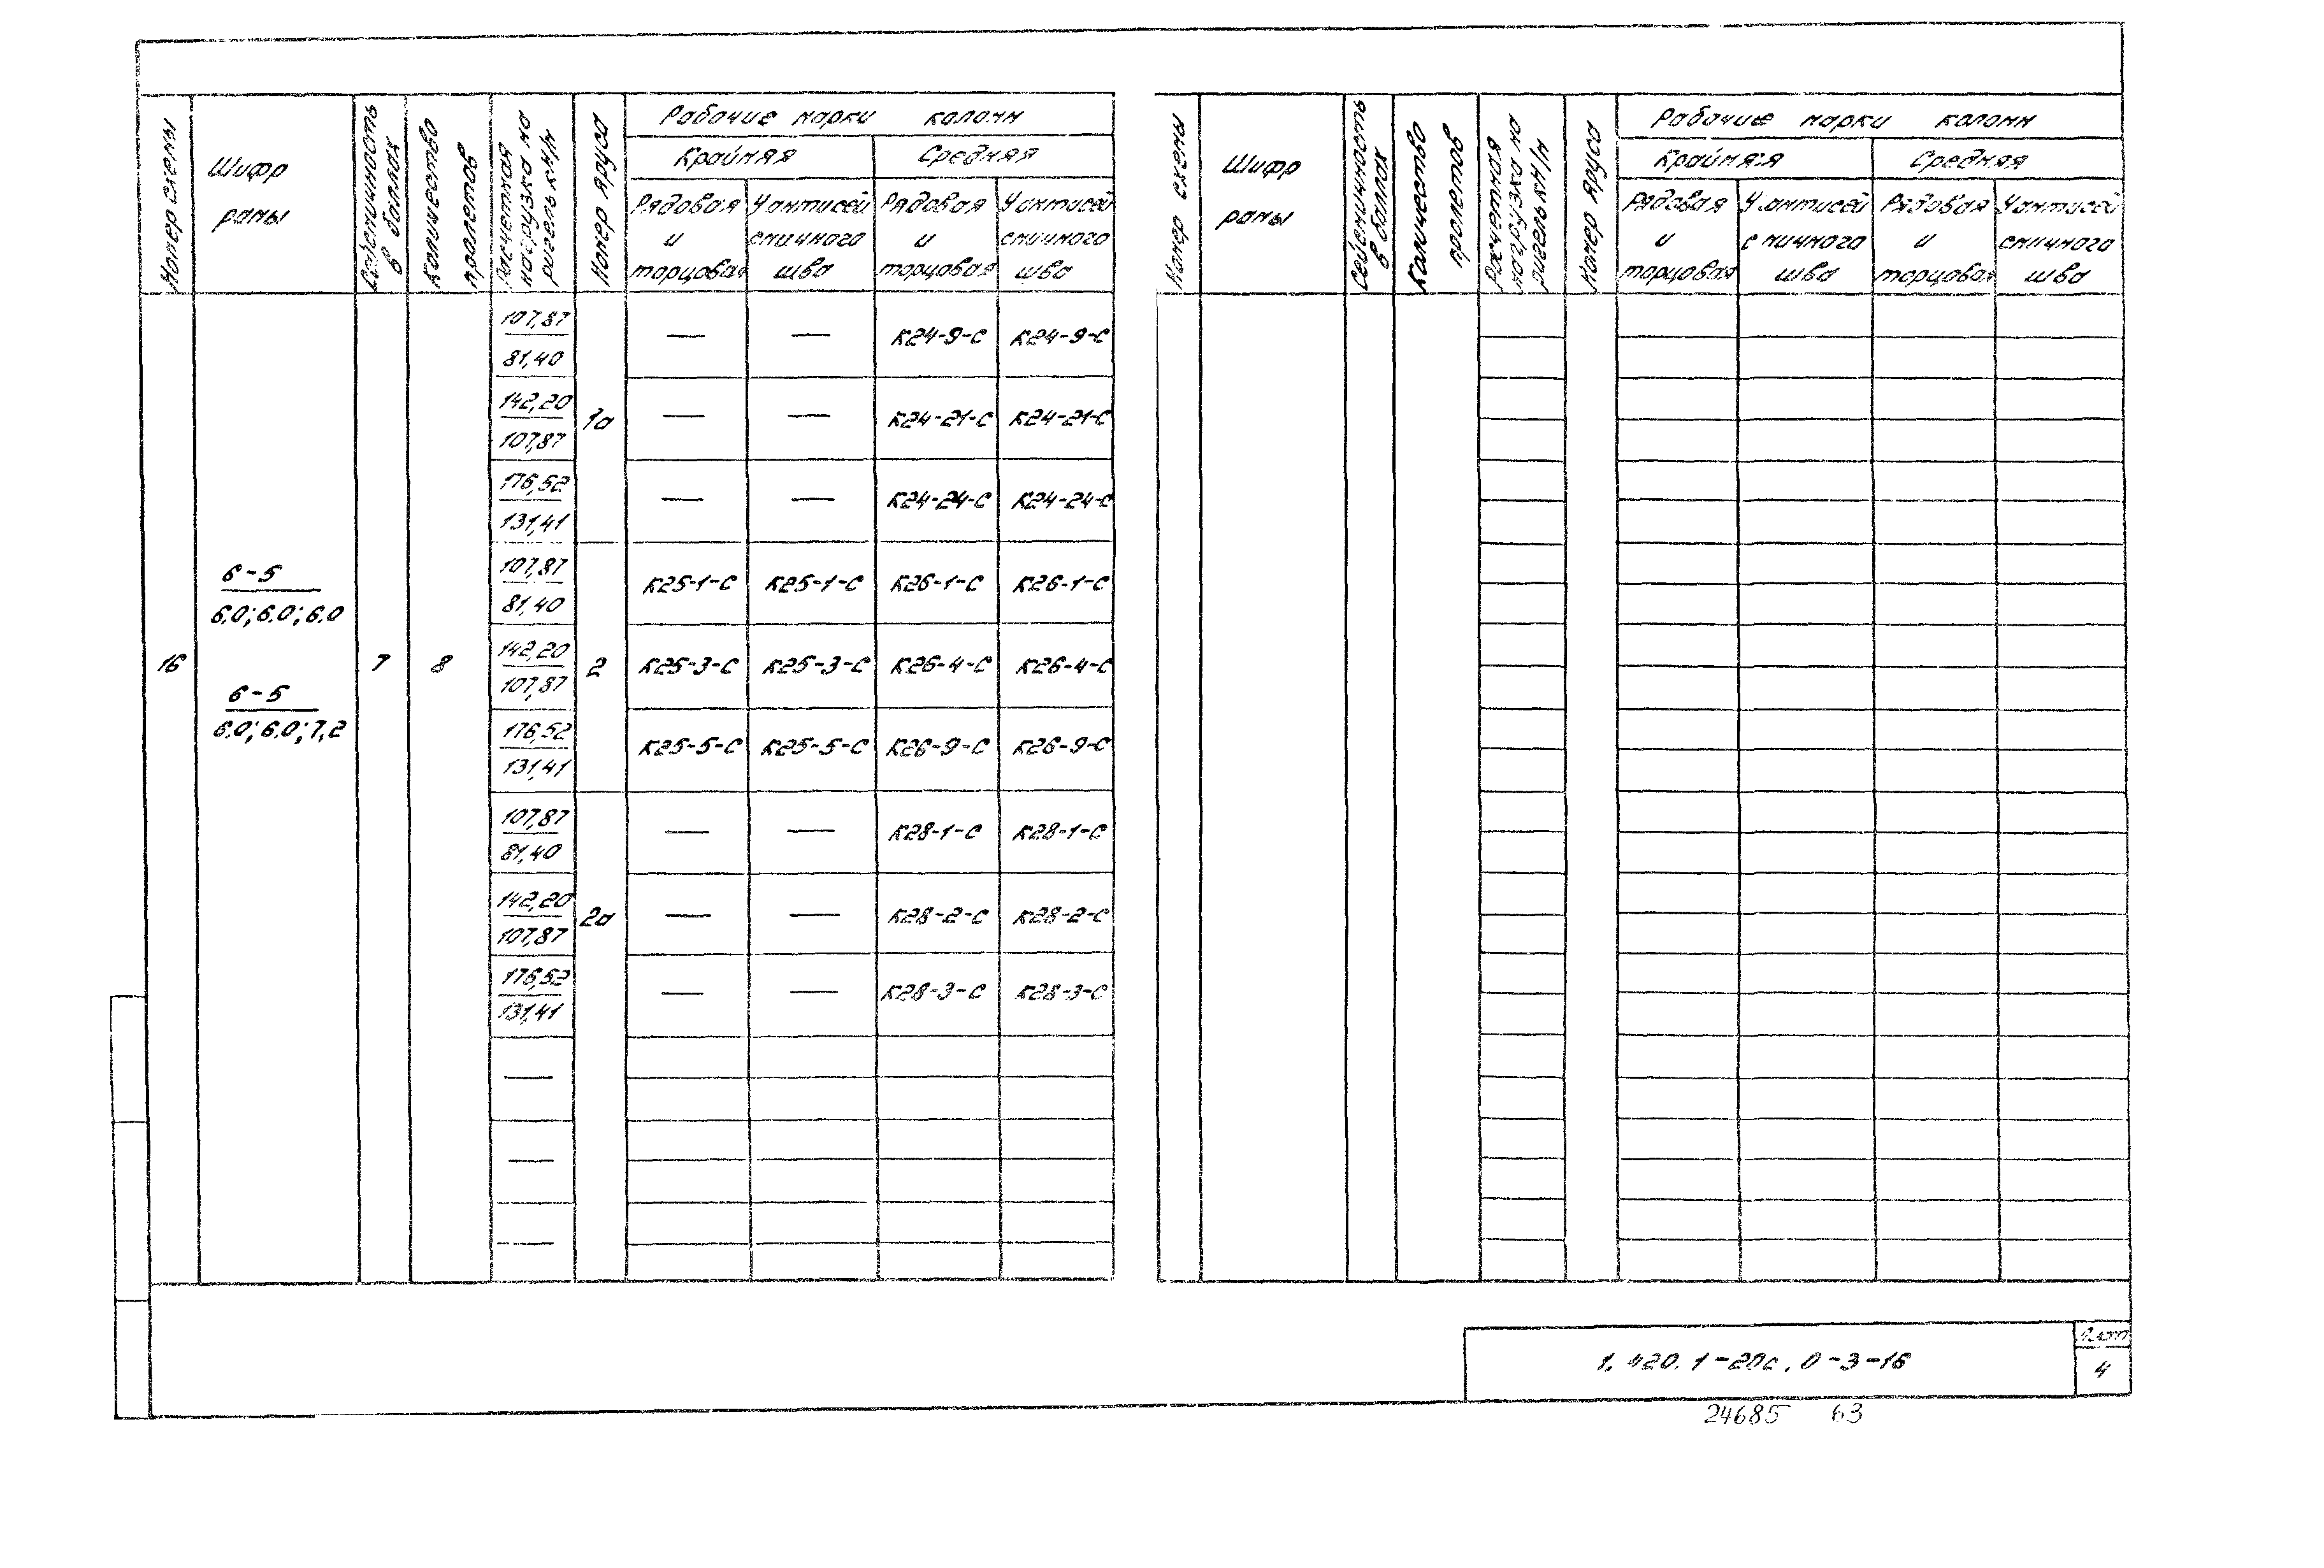 Номер схемы
Шифр рамы
Сейсмичность в баллах
Количество пролетов
Расчетная нагрузка на ригель кН/м
Номер яруса
Рабочие марки колонн
Крайняя
Средняя
Рядовая и торцовая
У антисейсмичного шва
Рядовая и торцовая
У антисейсмичного шва
16
6-5
6.0; 6.0; 6.0
6-5
6.0; 6.0; 7,2
7
8
107,87 81,40 — — К24-9-С К24-9-С
1а
142,20 107,87 — — К24-21-С К24-21-С
176,52 131,41 — — К24-24-С К24-24-С
107,87 81,40 К25-1-С К25-1-С К26-1-С К26-1-С
2
142,20 107,87 К25-3-С К25-3-С К26-4-С К26-4-С
176,52 131,41 К25-5-С К25-5-С К26-9-С К26-9-С
107,87 81,40 — — К28-1-С К28-1-С
2а
142,20 107,87 — — К28-2-С К28-2-С
176,52 131,41 — — К28-3-С К28-3-С
—
—
—
Номер схемы
Шифр рамы
Сейсмичность в баллах
Количество пролетов
Расчетная нагрузка на ригель кН/м
Номер яруса
Рабочие марки колонн
Крайняя
Средняя
Рядовая и торцовая
У антисейсмичного шва
Рядовая и торцовая
У антисейсмичного шва
1.420.1-20с.0-3-16
Лист
4
24685 63